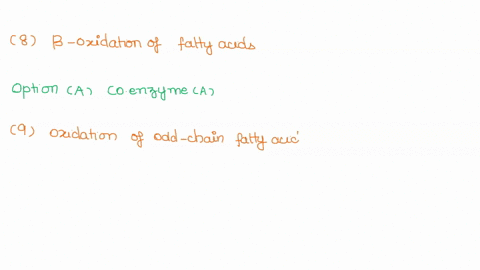 (8) β-oxidation of fatty acids
Option (A) Coenzyme (A)
(9) oxidation of odd-chain fatty acid